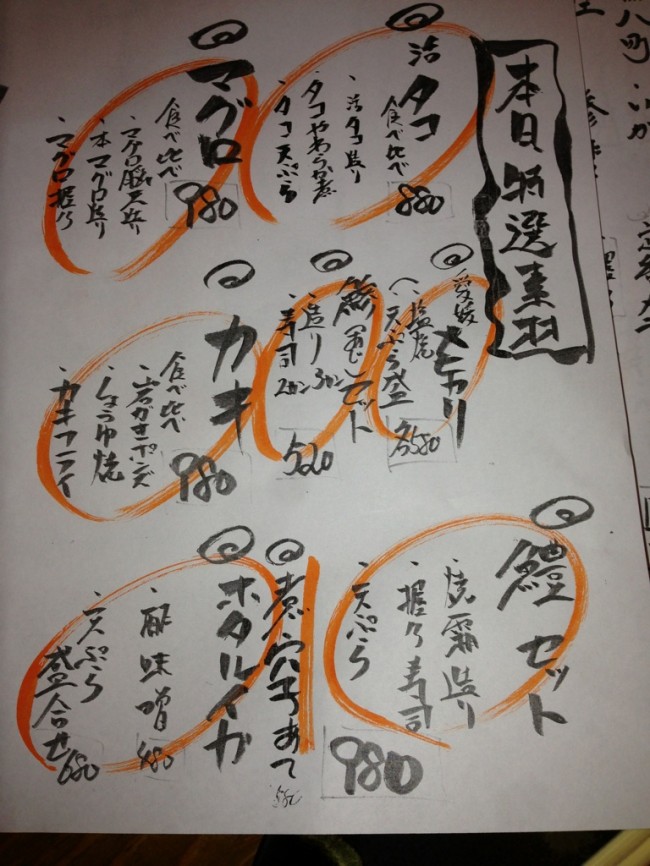 本日特選素材
活タコ
食べ比べ
・活タコ造り
・タコやわらか煮
・タコ天ぷら
880
マグロ
食べ比べ
・マグロ脳天造り
・本マグロ造り
・マグロ握り
980
愛媛
・塩焼
・天ぷら盛
セット
・造り
・寿司2カン
520
カキ
食べ比べ
・岩ガキポンズ
・しょうゆ焼
・カキフライ
980
鱧セット
・焼霜造り
・握り寿司
・天ぷら
980
煮穴子あて
580
ホタルイカ
・酢味噌
480
・天ぷら盛合せ
680